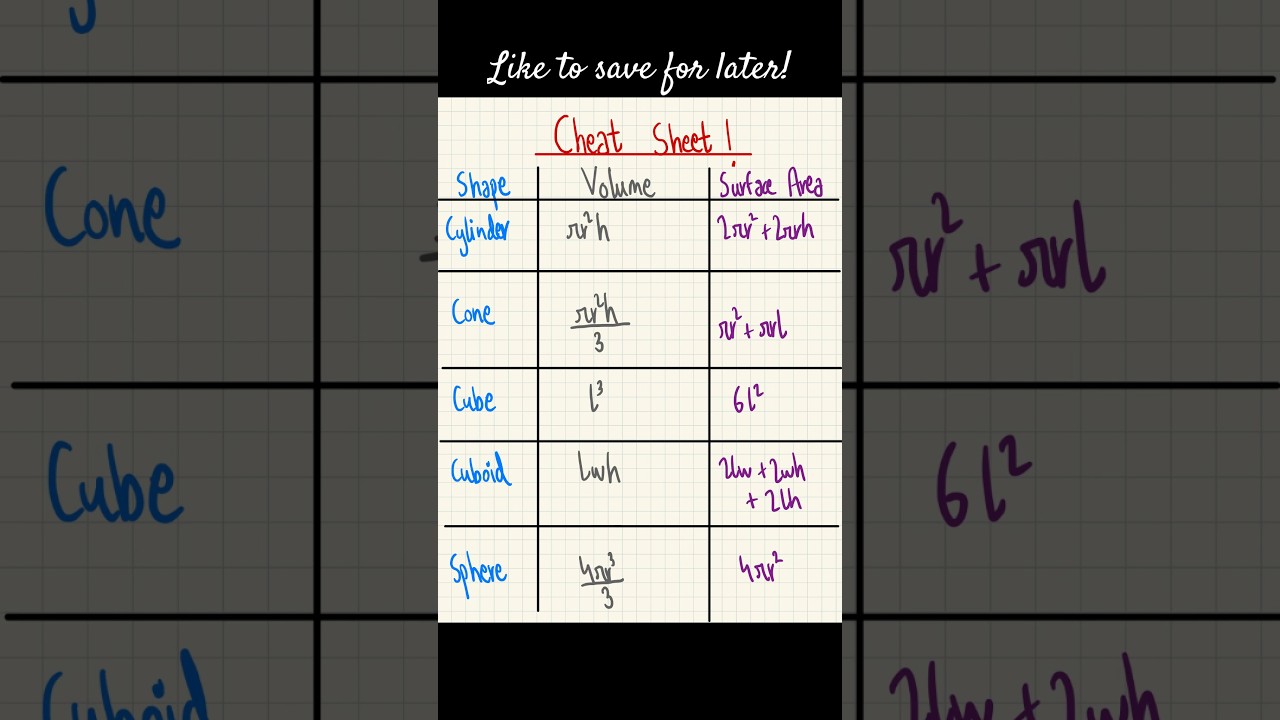 Like to save for later!
Cheat Sheet!
Shape Volume Surface Area
Cylinder πr²h 2πr² + 2πrh
Cone πr²h/3 πr² + πrl
Cube l³ 6l²
Cuboid lwh 2lw + 2wh
+ 2lh
Sphere 4πr³/3 4πr²
Cone πr² + πrl
Cube 6l²
Cuboid 2lw + 2wh